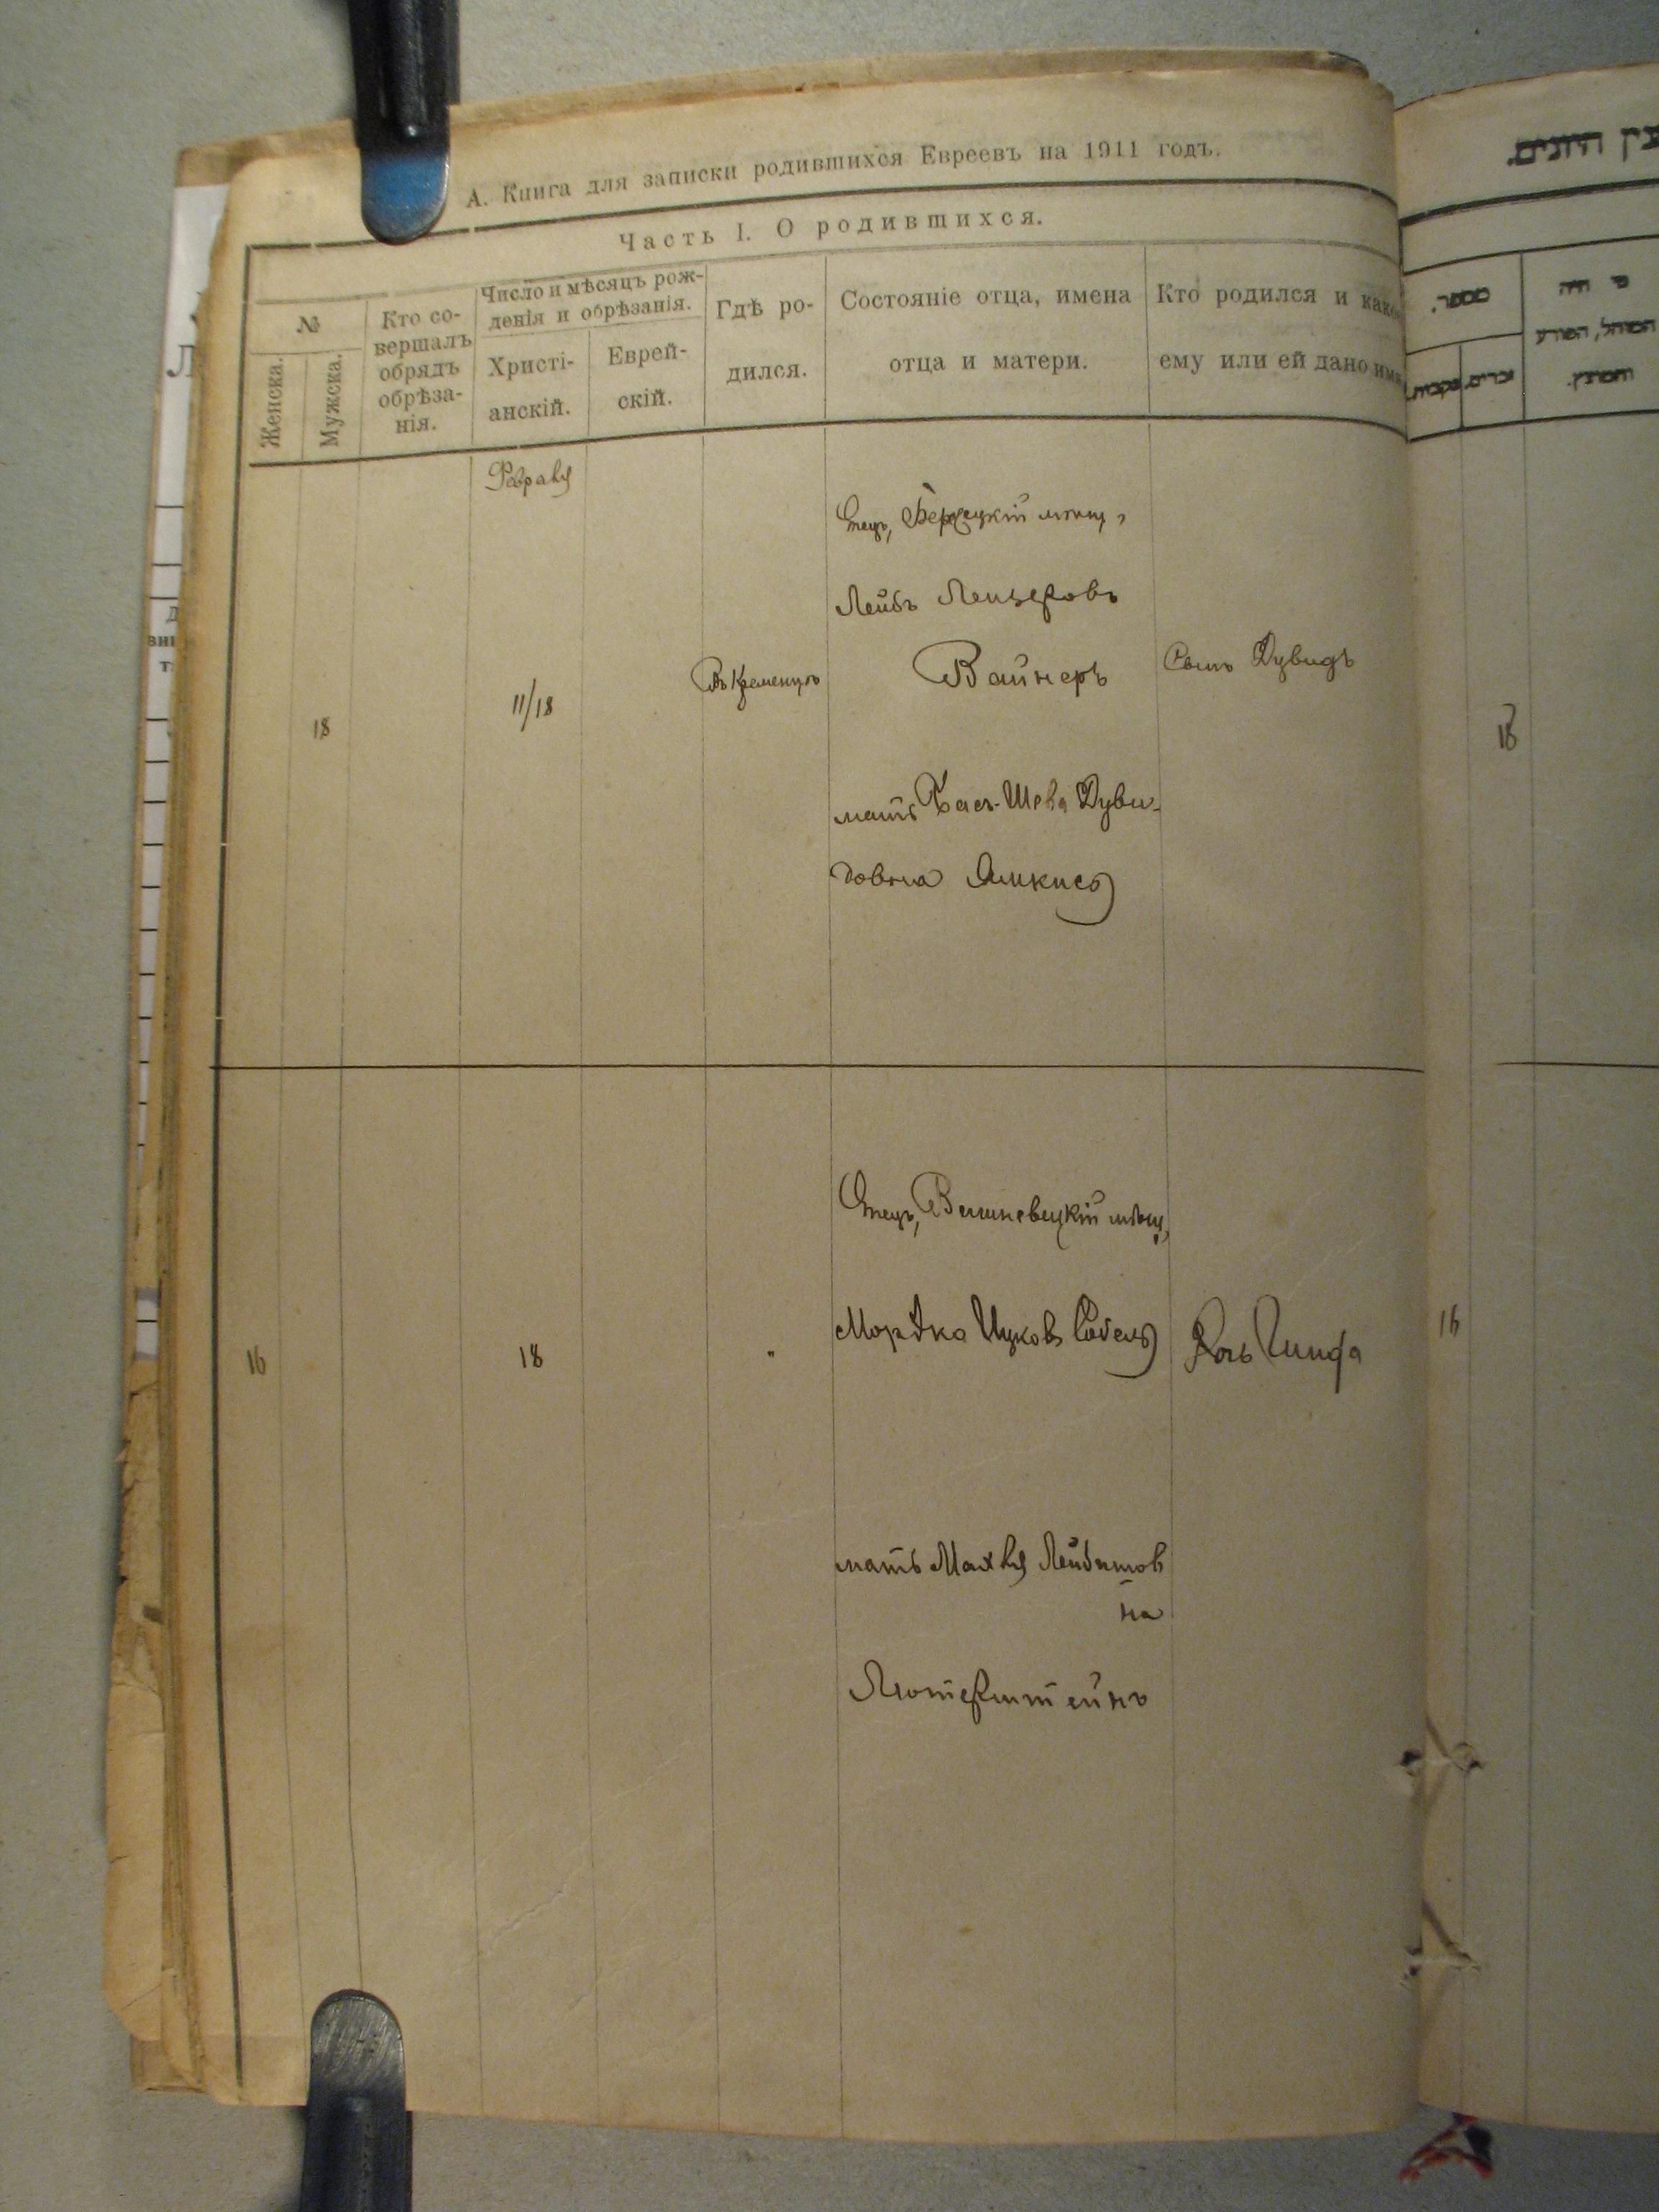 А. Книга для записки родившихся Евреевъ на 1911 годъ.
Часть I. О родившихся.
№
Женска.
Мужска.
Кто со-
вершалъ
обрядъ
обрѣза-
нія.
Число и мѣсяцъ рож-
денія и обрѣзанія.
Христі-
анскій.
Еврей-
скій.
Гдѣ ро-
дился.
Состояніе отца, имена
отца и матери.
Кто родился и како
ему или ей дано имя
Февраля
18
11/18
Въ Кременцѣ
Отецъ, мѣщ,
Лейбъ Лейзеровъ
Вайнеръ
мать Бася-Шева Дуви-
довна
Сынъ Дувидъ
16
18
"
Отецъ, Вишневецкій мѣщ,
Мордко Ицковъ Собель
мать Малка Лейбишов
на
Лютерштейнъ
Дочь
מספר.
זכרים.
נקבות.
מי היה
המוהל, הפורע
והמוצץ.
18
16